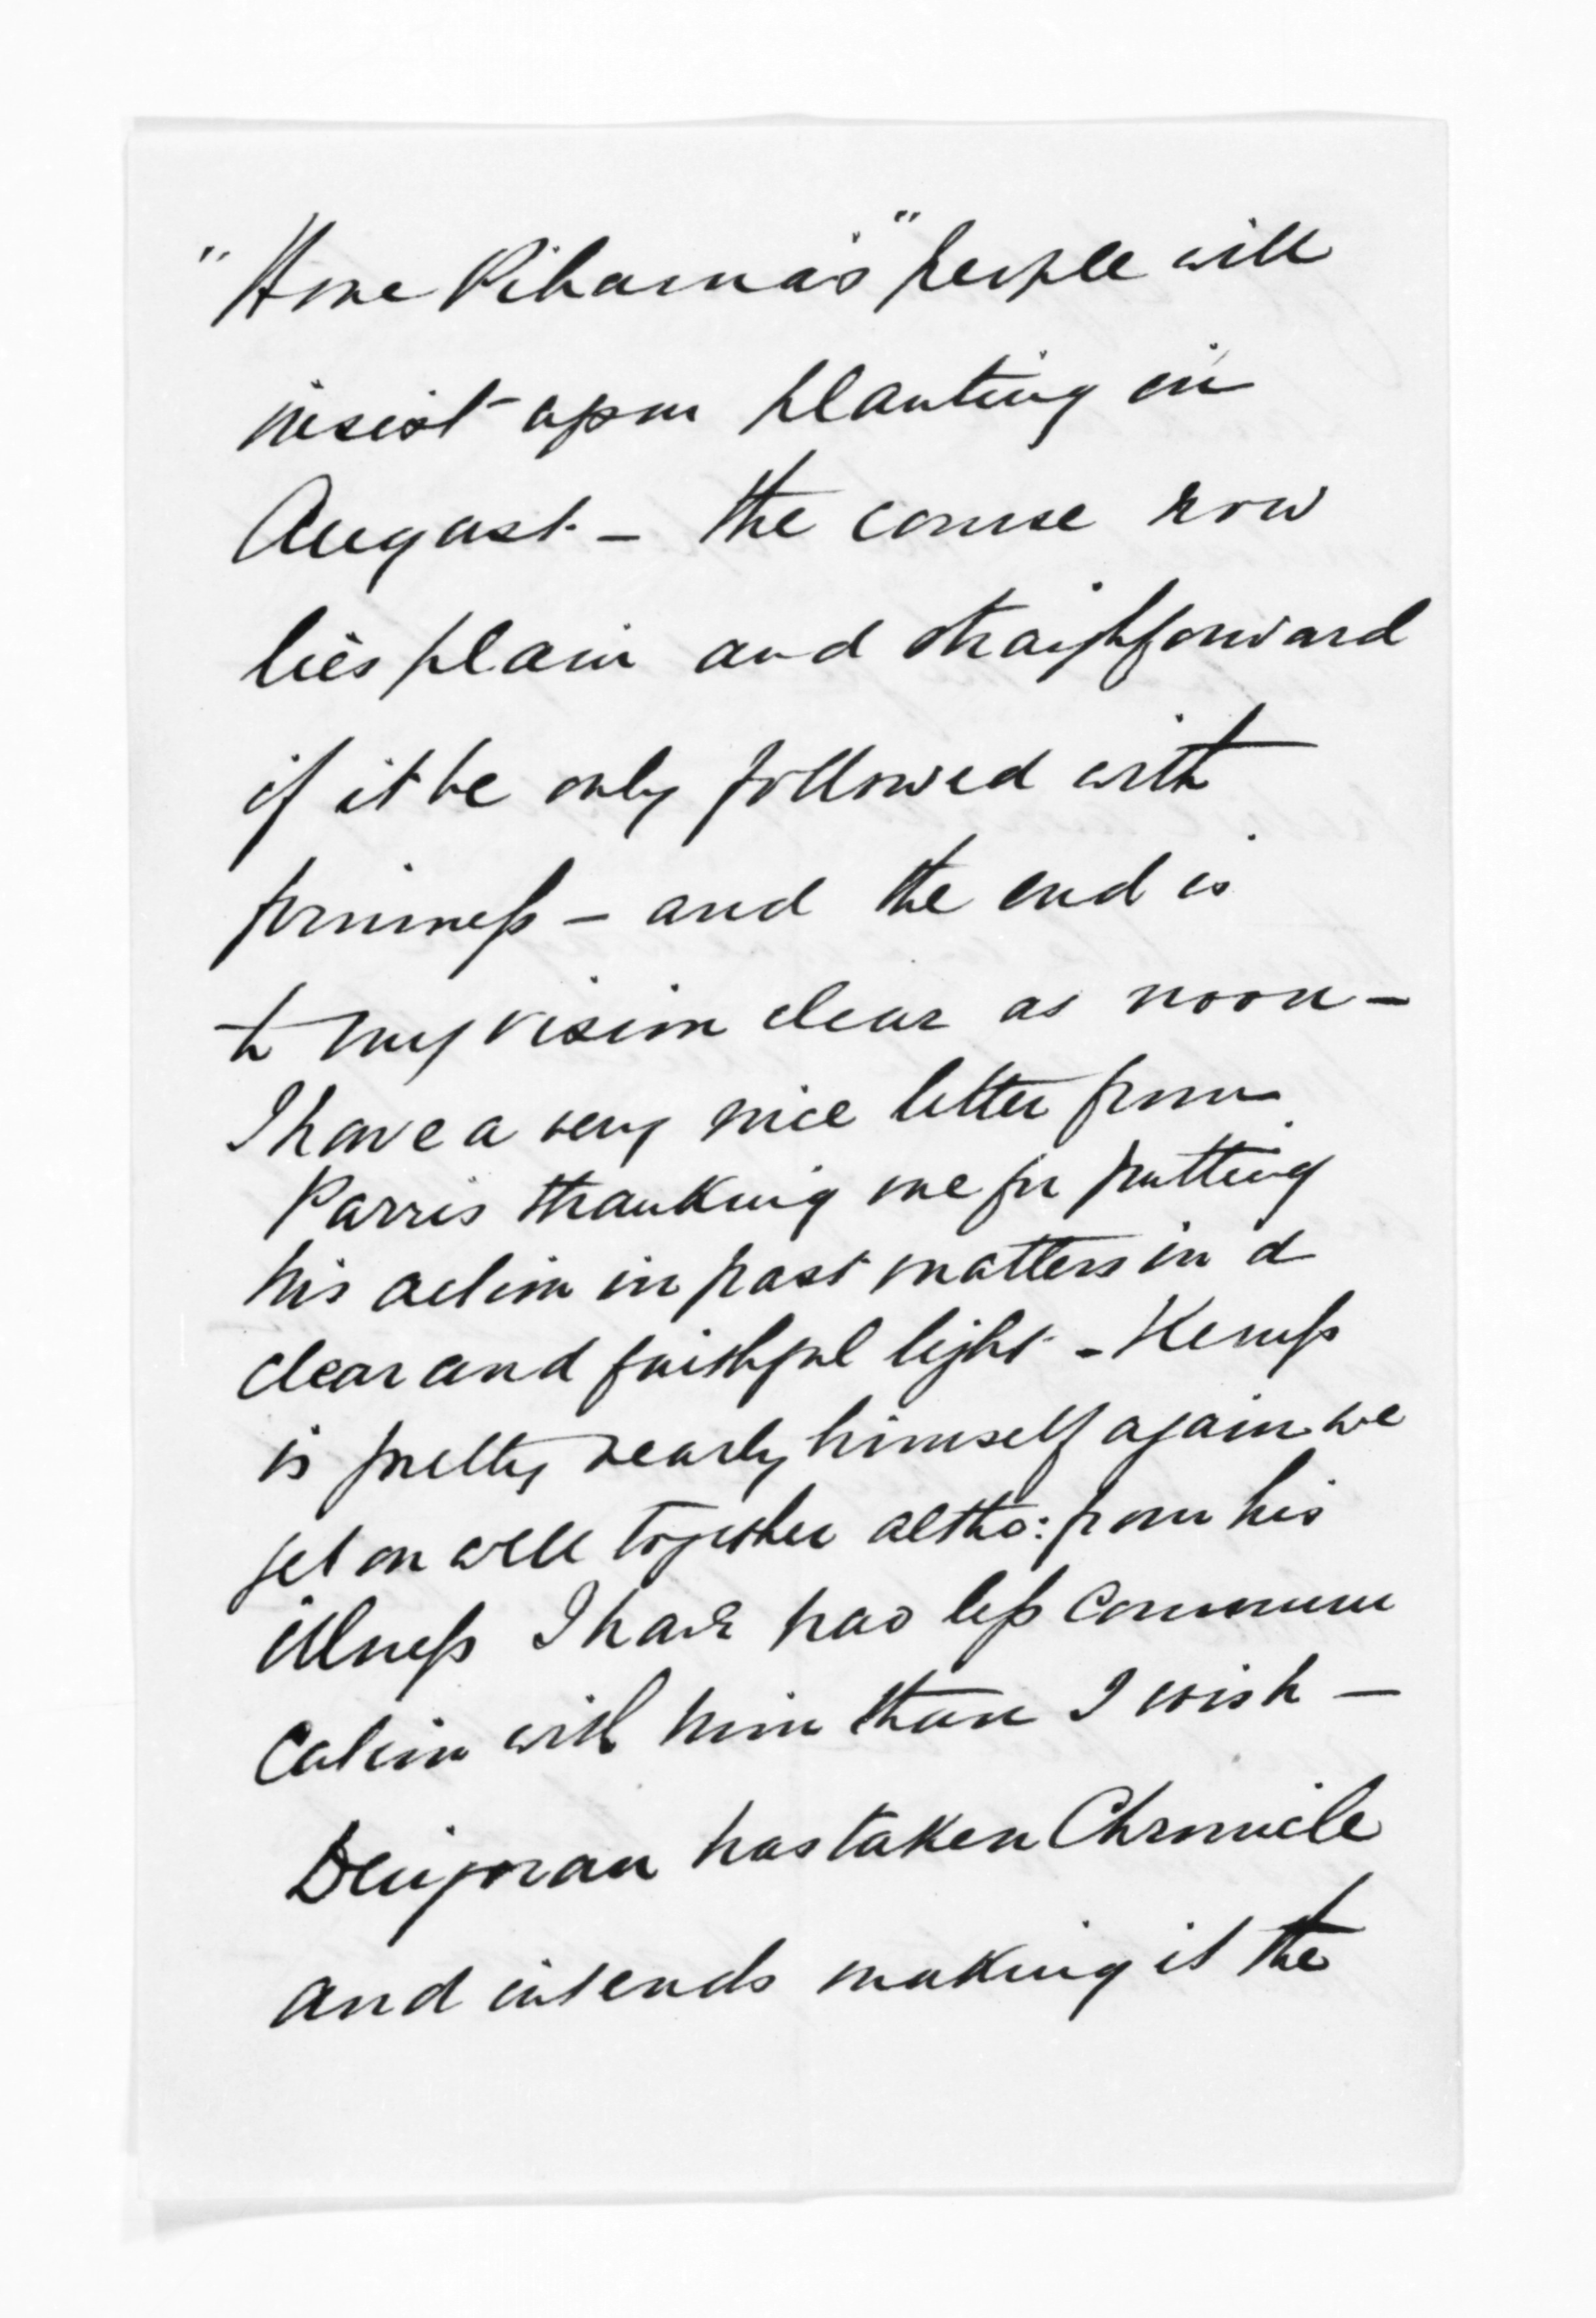 "Hone Pihama's" people will
insist upon planting in
August - the course now
lies plain and straighforward
if it be only followed with
firmness - and the end is
to my vision clear as noon -
I have a very nice letter from
Parris thanking me for putting
his action in past matters in a
clear and faithful light - Kemp
is pretty nearly himself again we
get on well together altho: from his
illness I have had less commun
cation with him than I wish -
has taken Chronicle
and intends making it the